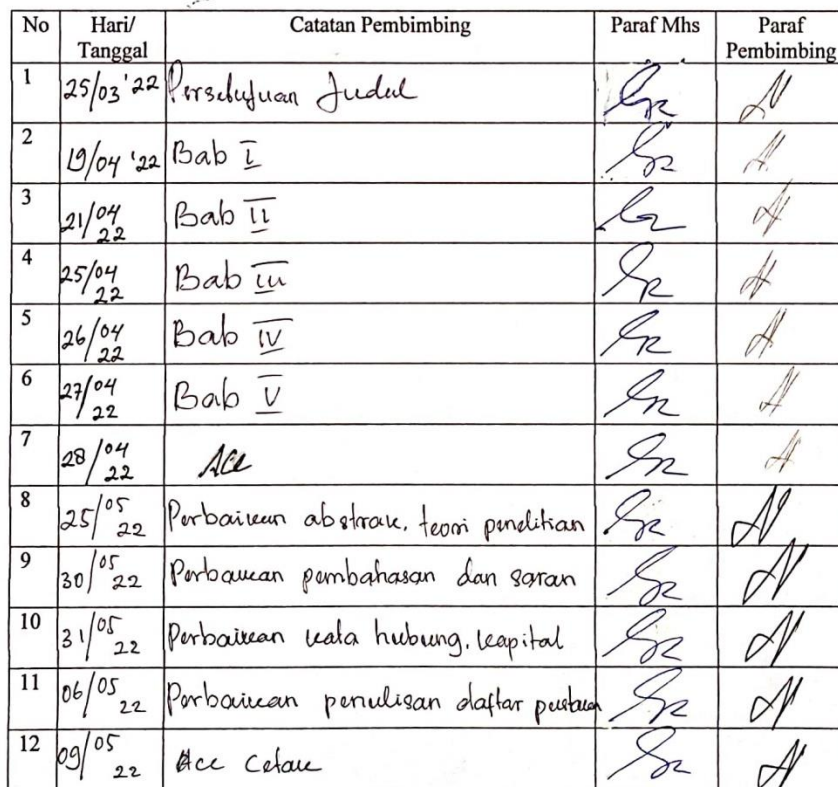 No Hari/ Tanggal Catatan Pembimbing Paraf Mhs Paraf Pembimbing
1 25/03 '22 Persetujuan Judul
2 19/04 '22 Bab I
3 21/04 22 Bab II
4 25/04 22 Bab III
5 26/04 22 Bab IV
6 27/04 22 Bab V
7 28/04 22 Acc
8 25/05 22 Perbaikan abstrak, teori penelitian
9 30/05 22 Perbaikan pembahasan dan saran
10 31/05 22 Perbaikan kata hubung, kapital
11 06/05 22 Perbaikan penulisan daftar pustaka
12 09/05 22 Acc Cetak